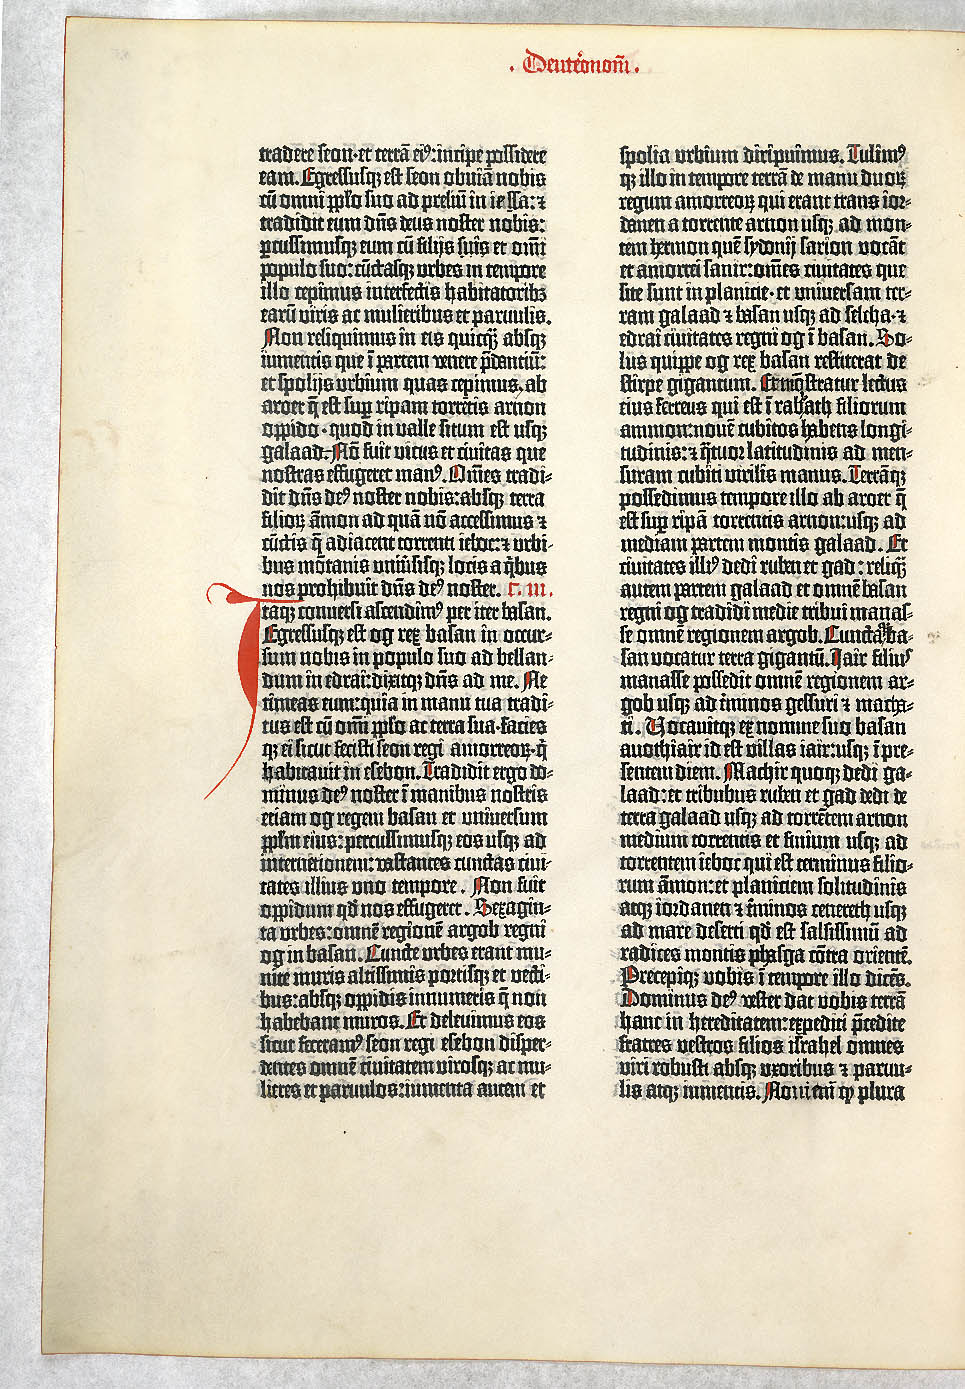 . Deuteͬonom̄ .
tradere seon·et terrā eiꝰ:incipe possidere
eam. Egressusqꝫ est seon obuiā nobis
cū omni ppl̓o suo ad preliū in iessa: ⁊
tradidit eum dn̄s deus noster nobis:
ꝑcussimusqꝫ eum cū filijs suis et om̄i
populo suo: cūctasqꝫ vrbes in tempore
illo cepimus interfectis habitatoribꝫ
earū viris ac mulieribus et paruulis.
Non reliquimus in eis quicq̄ꝫ absqꝫ
iumentis que ī partem venere p̄dantiū:
et spolijs vrbium quas cepimus, ab
aroer q̄ est suꝑ ripam torrētis arnon
oppido· quod in valle situm est usqꝫ
galaad. Nō fuit vicus et ciuitas que
nostras effugeret manꝰ. Om̄es tradi-
dit dn̄s deꝰ noster nobis: absqꝫ terra
filioꝝ āmon ad quā nō accessimus ⁊
cūctis q̄ adiacent torrenti ieboc: ⁊ vrbi-
bus mōtanis vniūsisqꝫ locis a q̓bus
nos prohibuit dn̄s deꝰ noster. c. iii.
Itaqꝫ conuersi ascendimꝰ per iter basan.
Egressusqꝫ est og rex basan in occur-
sum nobis in populo suo ad bellan-
dum in edrai: dixitqꝫ dn̄s ad me. Ne
timeas eum: quia in manu tua tradi-
tus est cū om̄i ppl̓o ac terra sua· facies
qꝫ ei sicut fecisti seon regi amorreoꝝ· q̓
habitauit in esebon. Tradidit ergo do-
minus deꝰ noster ī manibus nostris
etiam og regem basan et vniuersum
ppl̓m eius: percussimusqꝫ eos usqꝫ ad
internetionem: vastantes cunctas ciui-
tates illius vno tempore. Non fuit
oppidum qd̓ nos effugeret. Sexagin-
ta vrbes: omnē regionē argob regni
og in basan. Cuncte vrbes erant mu-
nite muris altissimis portisqꝫ et vecti-
bus: absqꝫ oppidis innumeris q̄ non
habebant muros. Et deleuimus eos
sicut feceramꝰ seon regi esebon disper-
dentes omnē ciuitatem virosqꝫ ac mu-
lieres et paruulos: iumenta autem et
spolia vrbium diripuimus. Tulimꝰ
qꝫ illo in tempore terrā de manu duoꝝ
regum amorreoꝝ qui erant trans ior-
danen a torrente arnon usqꝫ ad mon-
tem hermon quē sydonij sarion vocāt
et amorrei sanir: om̄es ciuitates que
site sunt in planicie· et vniuersam ter-
ram galaad ⁊ basan usqꝫ ad selcha· ⁊
edrai ciuitates regni og ī basan. So-
lus quippe og rex basan restiterat de
stirpe gigantum. Et mōstratur lectus
eius ferreus qui est ī rabath filiorum
ammon: nouē cubitos habens longi-
tudinis: ⁊ q̓tuor latitudinis ad men-
suram cubiti virilis manus. Terrāqꝫ
possedimus tempore illo ab aroer q̄
est suꝑ ripā torrentis arnon: usqꝫ ad
mediam partem montis galaad. Et
ciuitates illiꝰ dedi ruben et gad: reliq̄ꝫ
autem partem galaad et omnē basan
regni og tradidi medie tribui manas-
se omnē regionem argob. Cunctaqꝫ ba-
san vocatur terra gigantū. Iair filiꝰ
manasse possedit omnē regionem ar-
gob usqꝫ ad t̓minos gessuri ⁊ macha-
ti. Vocauitqꝫ ex nomine suo basan
auothiair id est villas iair: usqꝫ ī pre-
sentem diem. Machir quoqꝫ dedi ga-
laad: et tribubus ruben et gad dedi de
terra galaad usqꝫ ad torrētem arnon
medium torrentis et finium usqꝫ ad
torrentem ieboc qui est terminus filio-
rum āmon: et planiciem solitudinis
atqꝫ iordanen ⁊ t̓minos cenereth usqꝫ
ad mare deserti qd̓ est salsissimū ad
radices montis phasga cōtra orientē.
Precepiqꝫ vobis ī tempore illo dicēs.
Dominus deꝰ vester dat vobis terrā
hanc in hereditatem: expediti p̄cedite
fratres vestros filios israhel omnes
viri robusti absqꝫ vxoribus ⁊ paruu-
lis atqꝫ iumentis. Noui em̄ qꝫ plura